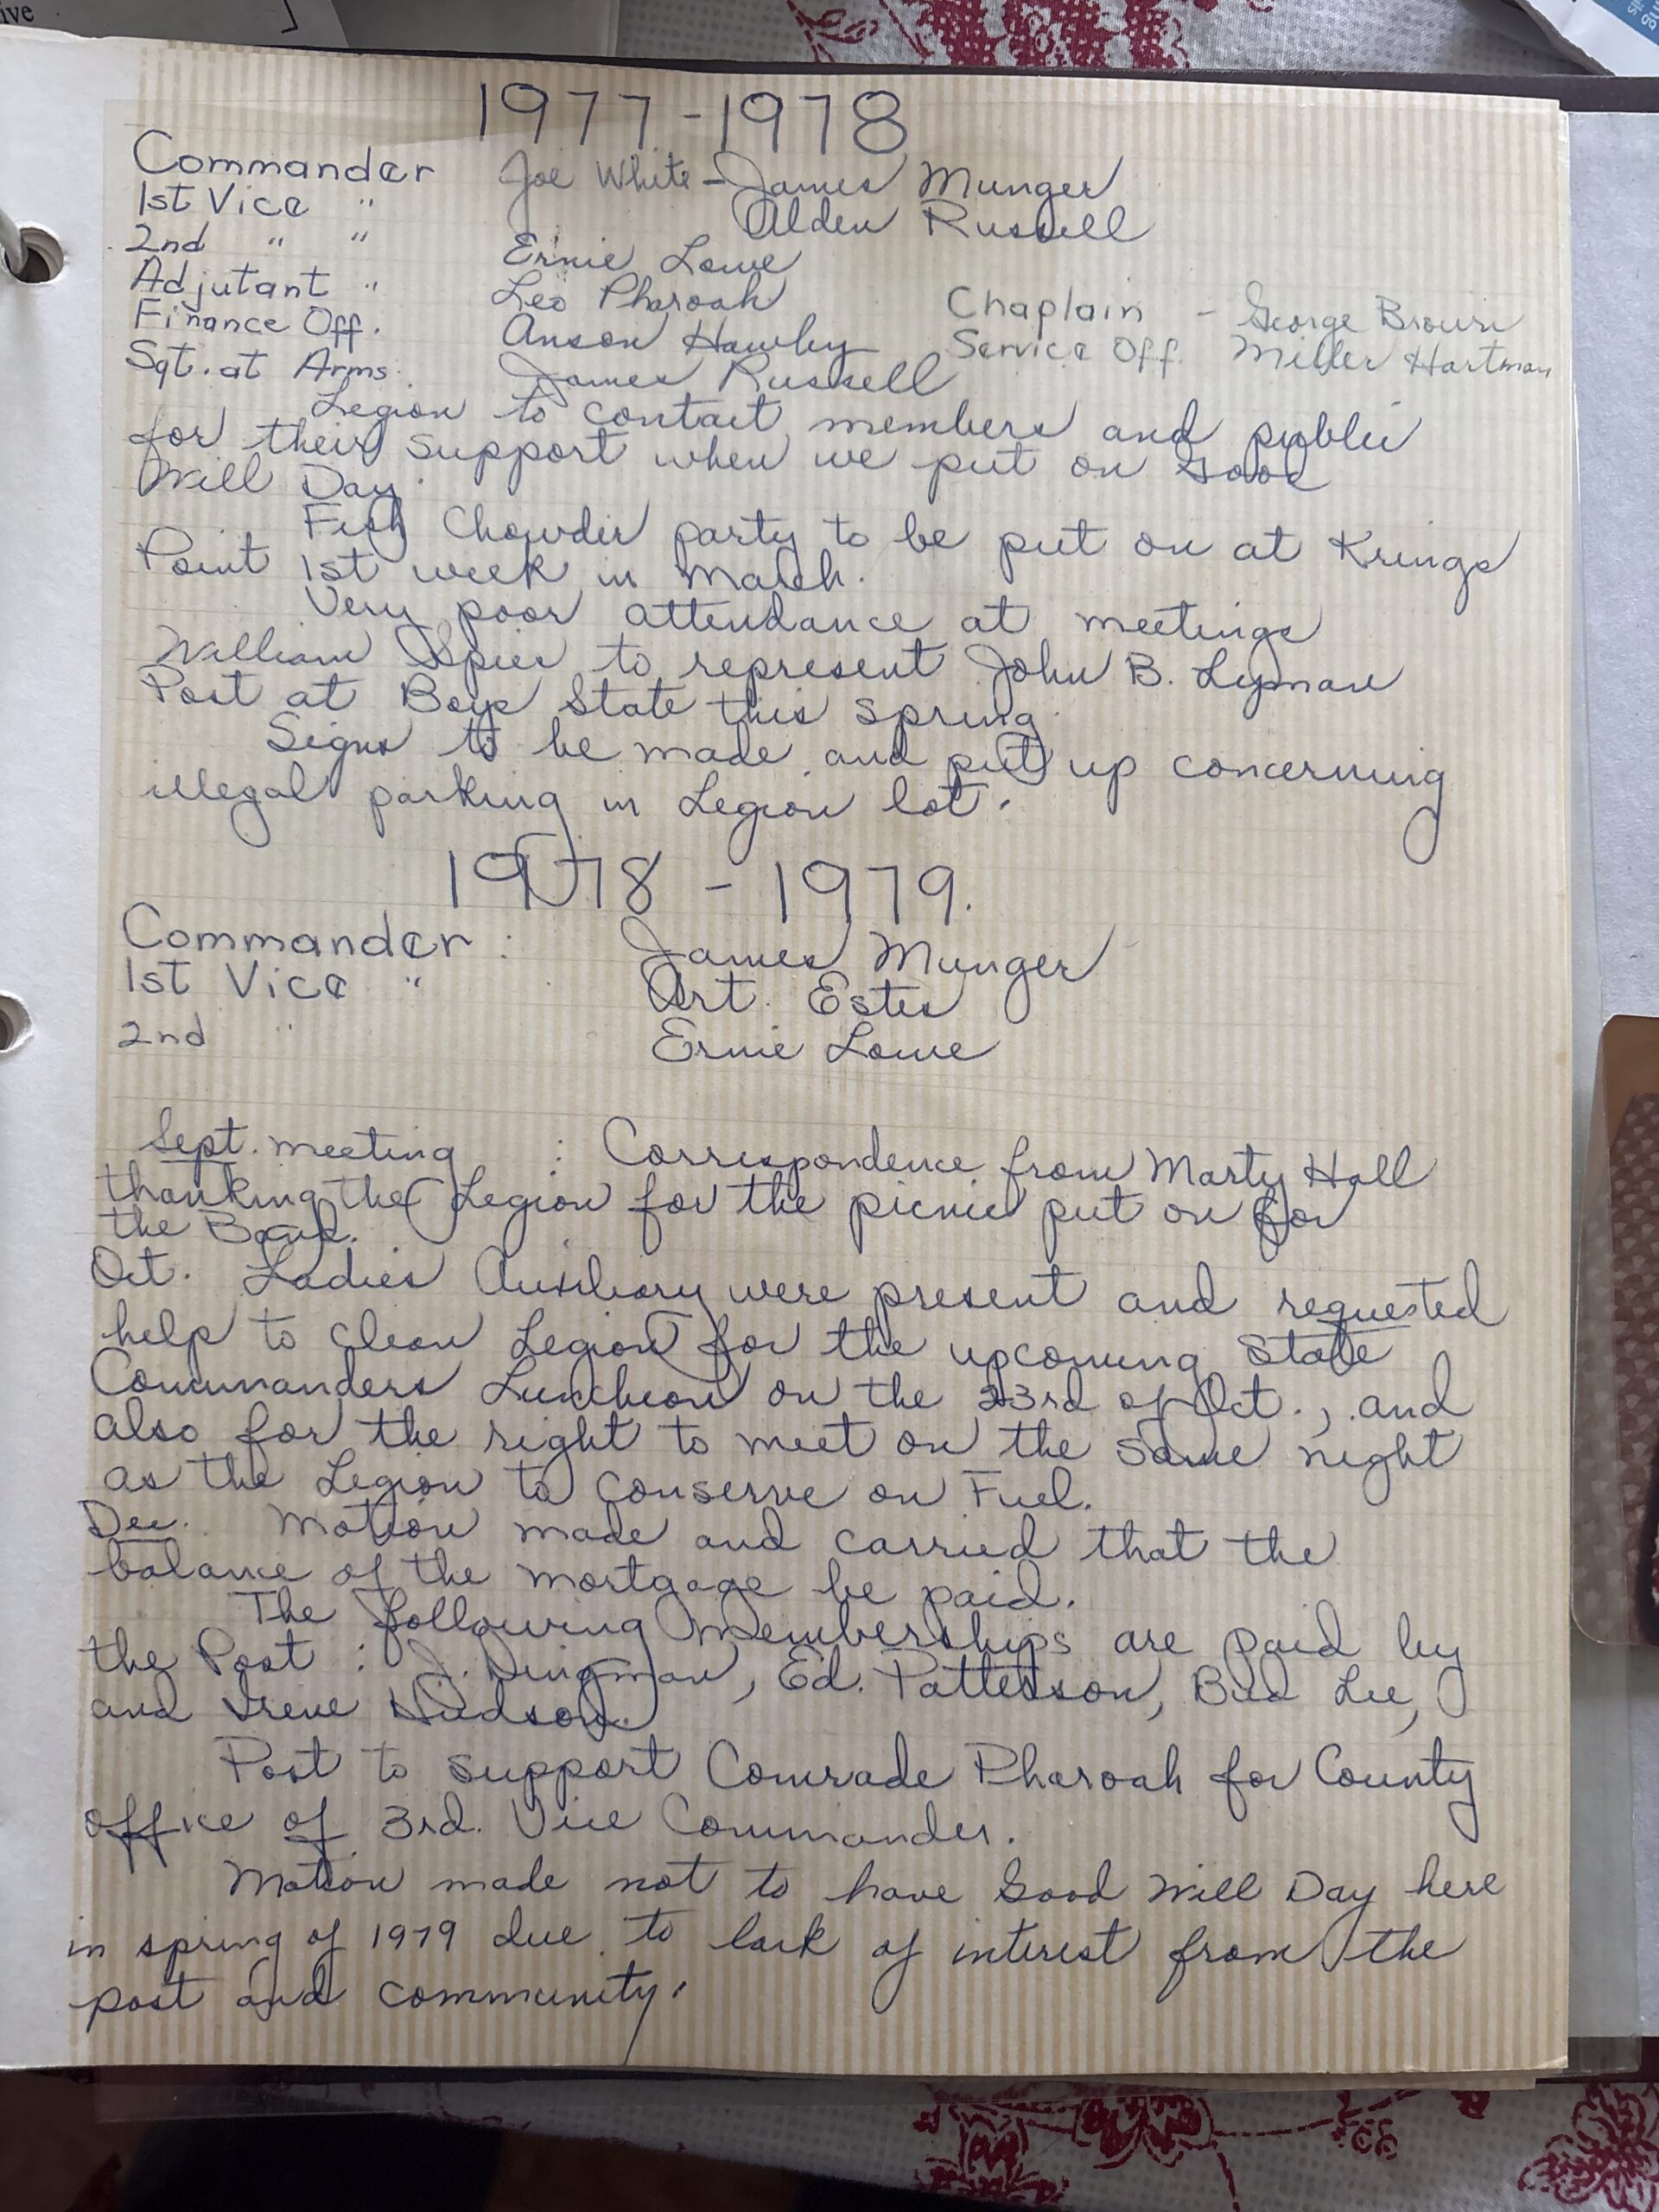 ive
1977-1978
Commander Joe White - James Munger
1st Vice " Alden Russell
2nd " " Ernie Lowe
Adjutant " Leo Pharoah Chaplain - George Brown
Finance Off. Anson Hawley Service Off. Miller Hartman
Sgt. at Arms. James Russell
Legion to contact members and public
for their support when we put on Good
Will Day.
Fish Chowder party to be put on at Krings
Point 1st week in March.
Very poor attendance at meetings
William Spier to represent John B. Lyman
Post at Boys State this spring.
Signs to be made and put up concerning
illegal parking in Legion lot.
1978 - 1979.
Commander : James Munger
1st Vice " Art. Estes
2nd " Ernie Lowe
Sept. meeting : Correspondence from Marty Hall
thanking the Legion for the picnic put on for
the Band.
Oct. Ladies Auxiliary were present and requested
help to clean Legion for the upcoming State
Commanders Luncheon on the 23rd of Oct., and
also for the right to meet on the same night
as the Legion to conserve on Fuel.
Dec. Motion made and carried that the
balance of the mortgage be paid.
The following memberships are paid by
the Post : J. Dingman, Ed. Patterson, Bud Lee,
and Irene Hudson.
Post to support Comrade Pharoah for County
office of 3rd. Vice Commander.
Motion made not to have Good Will Day here
in spring of 1979 due to lack of interest from the
post and community.